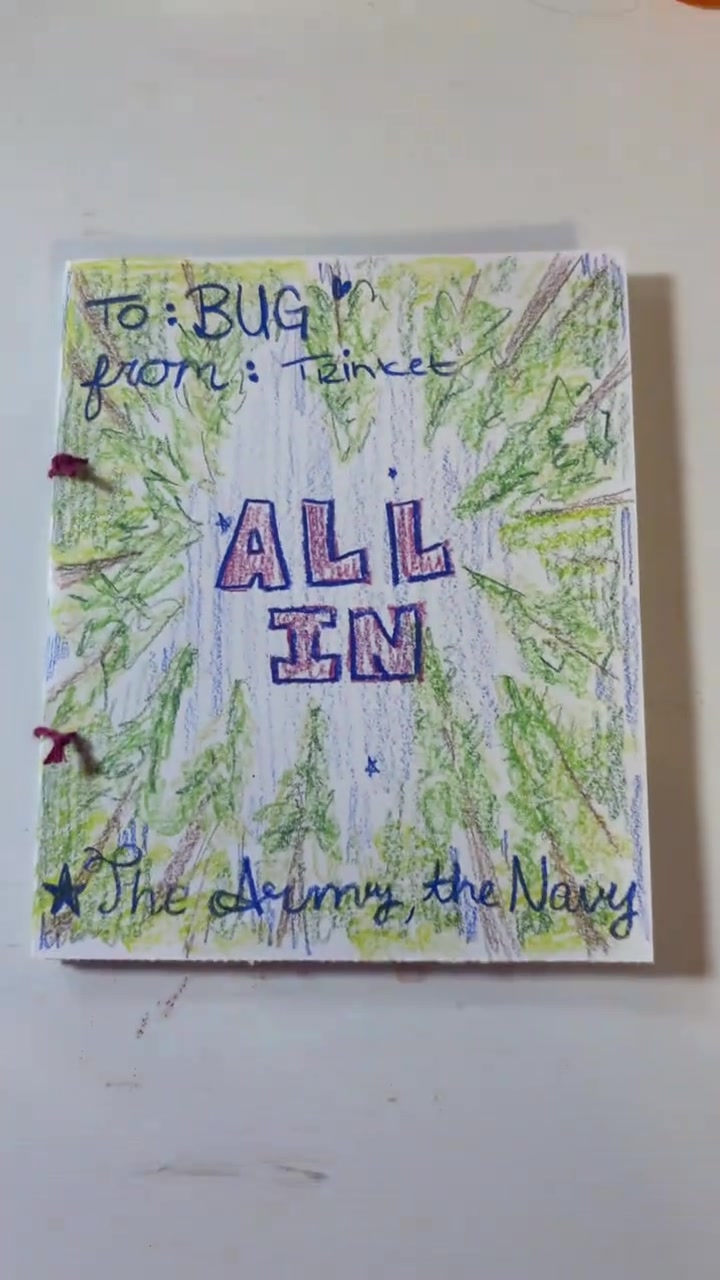 To: BUG
from: Trinket
ALL
IN
The Army, the Navy